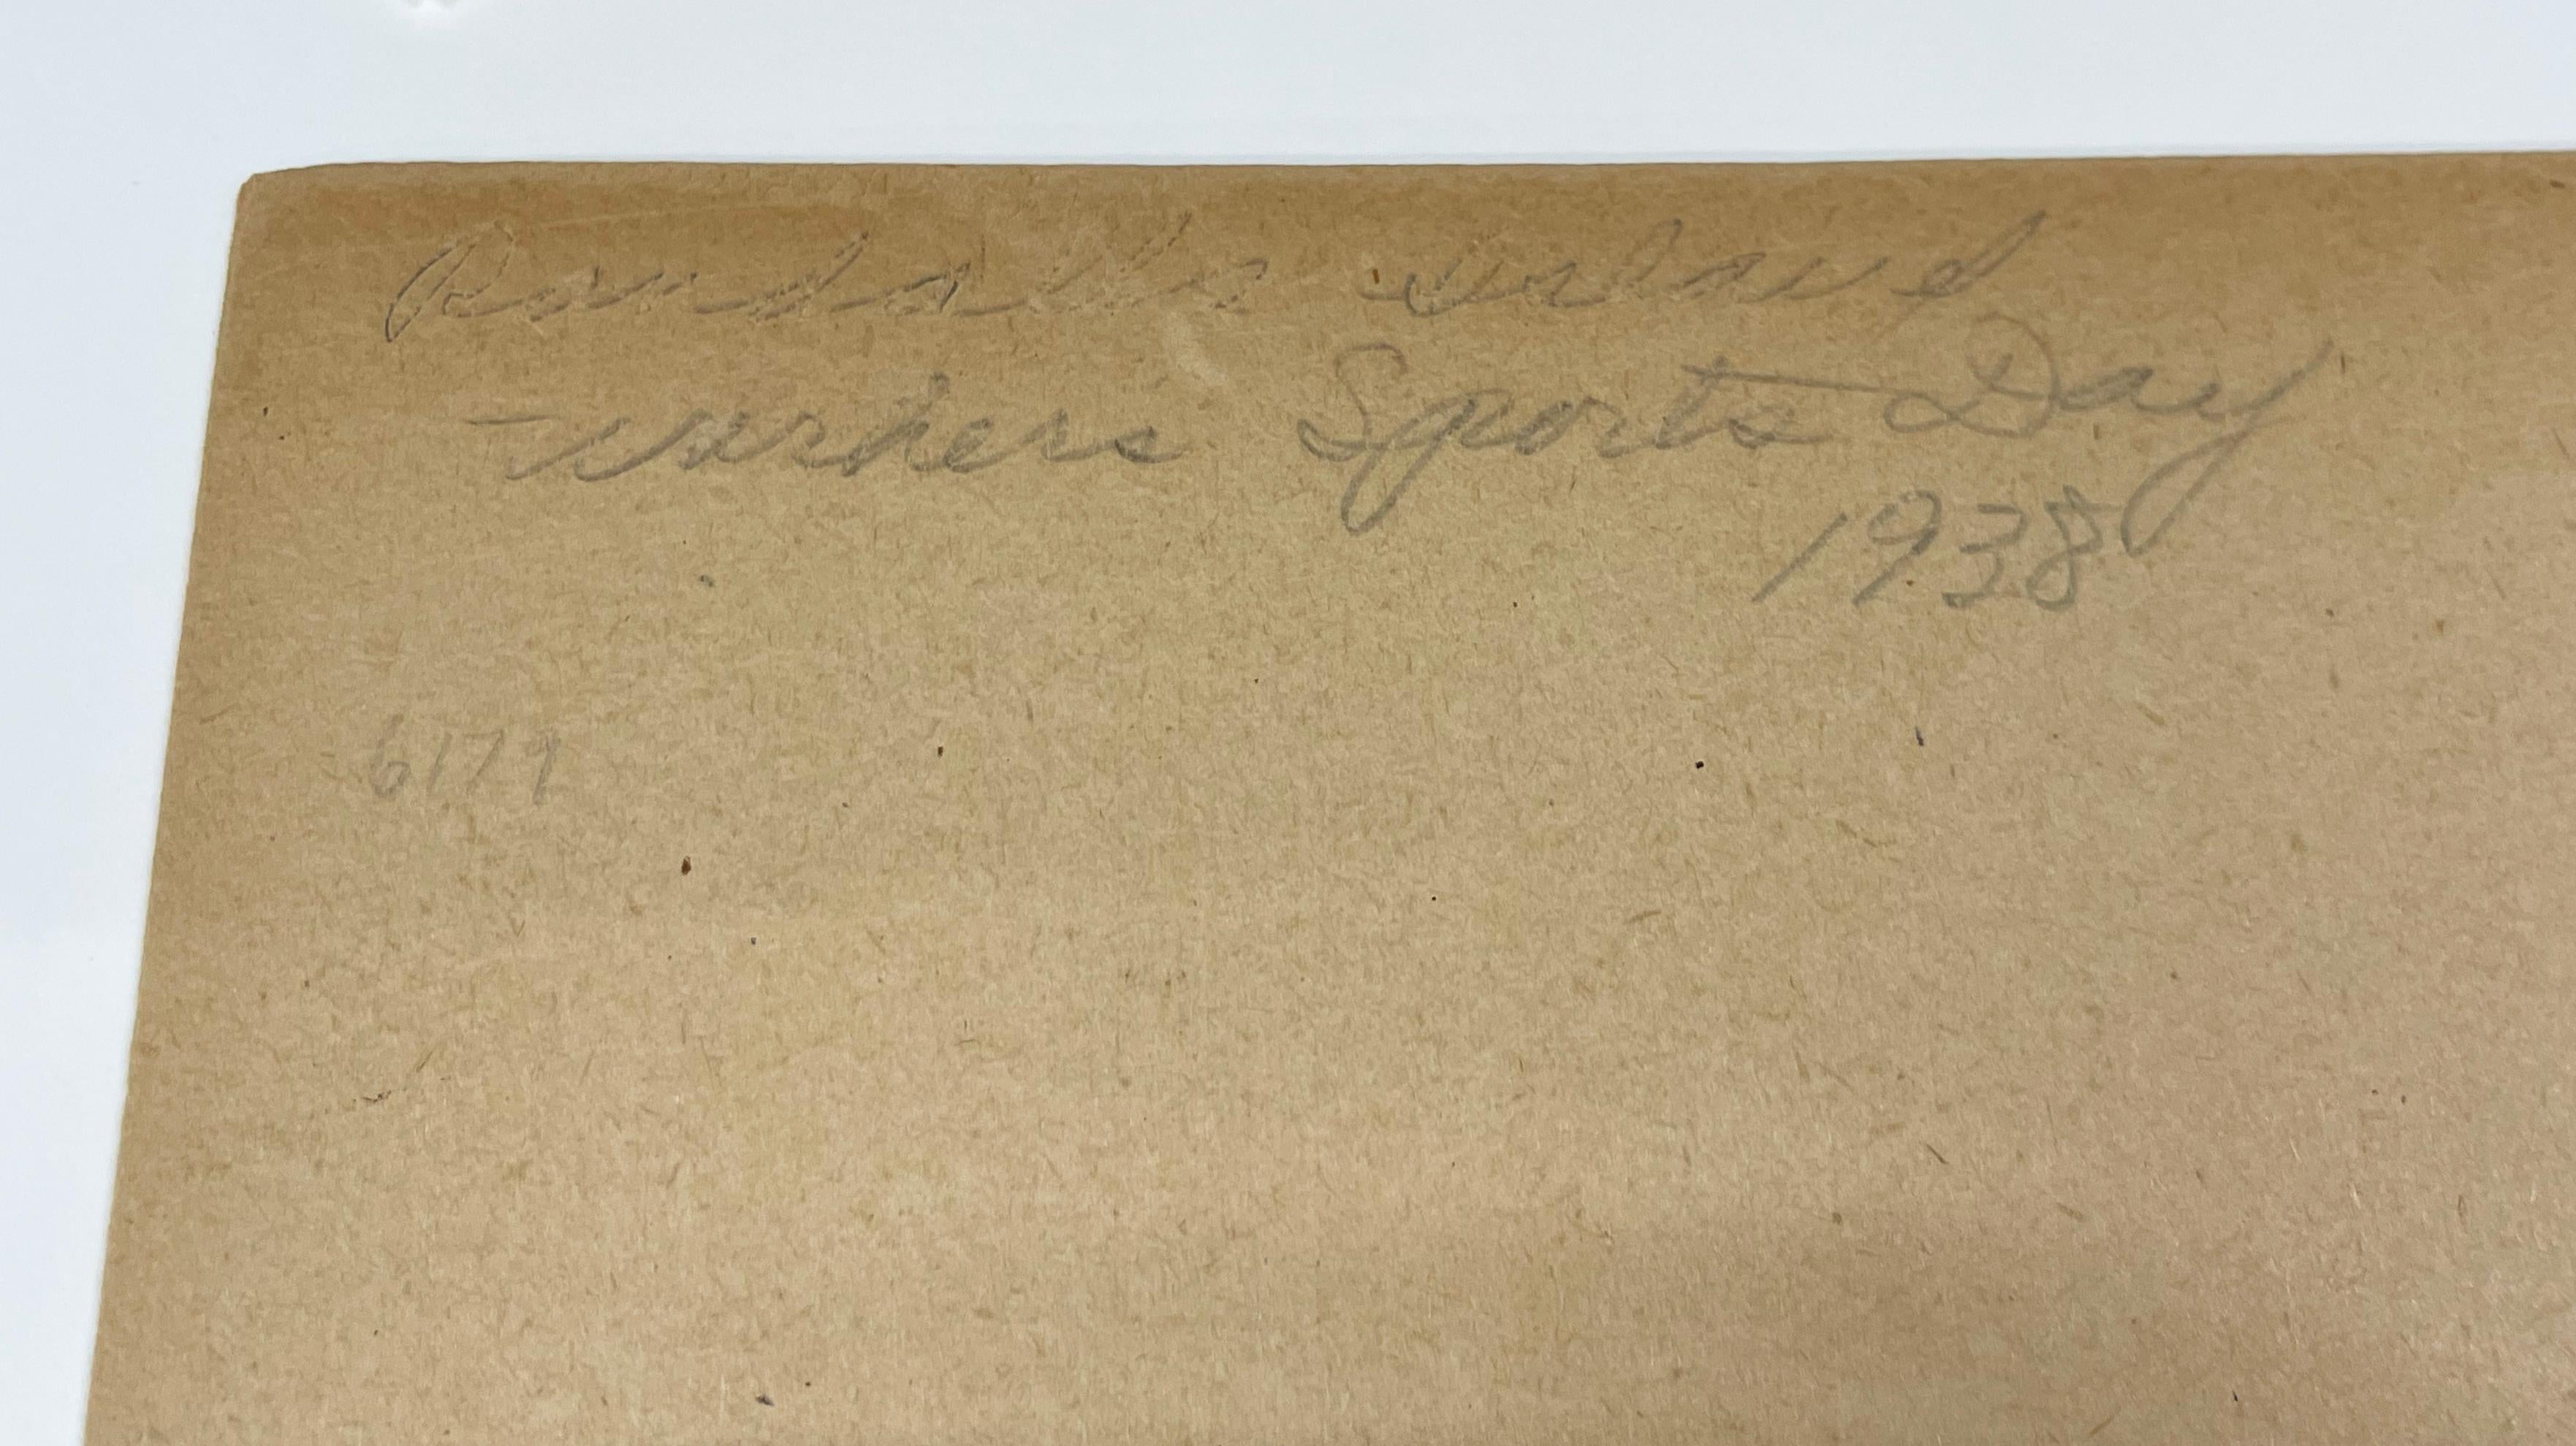 Randalls Island
Workers Sports Day
1938
6179